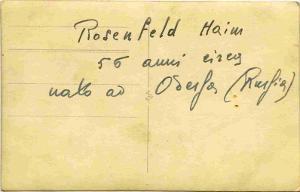 Rosenfeld Haim
56 anni circa
nato ad Odessa (Russia)